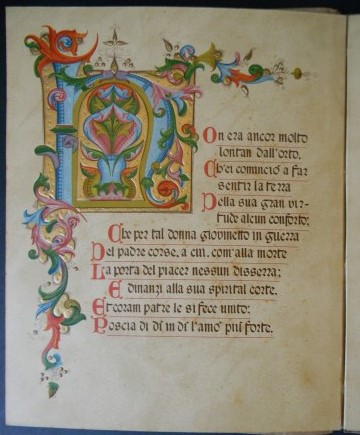 NOn era ancor molto
lontan dall'orto,
Ch'ei cominciò a far
sentir la terra
Della sua gran vir-
tude alcun conforto:
Che per tal donna giovinetto in guerra
Del padre corse, a cui, com'alla morte
La porta del piacer nessun disserra;
E dinanzi alla sua spirital corte.
Et coram patre le si fece unito:
Poscia di dì in dì l'amò più forte.